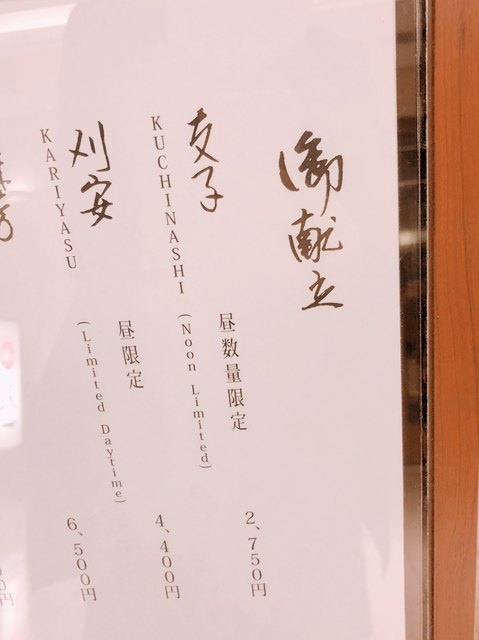 御献立
支子 昼数量限定 2、750円
KUCHINASHI (Noon Limited)
刈安 昼限定 4、400円
KARIYASU (Limited Daytime)
6、500円